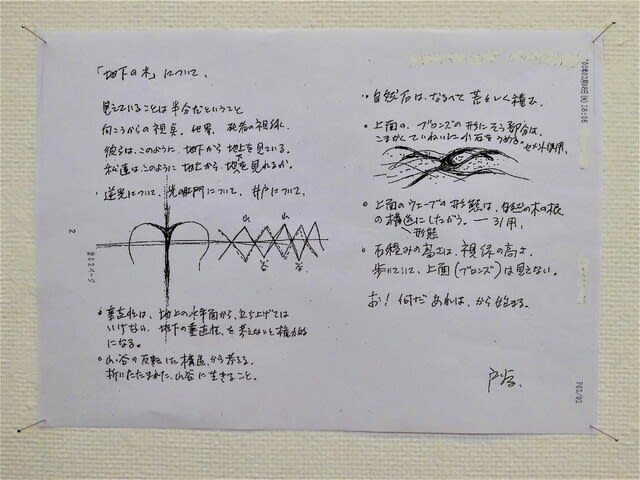 「地下の木」について、
見えていることは半分だということ
向こうからの視点、世界、死者の視線、
彼らは、このように、地下から地上を見ている。
私達は、このように地上から、地下を見れるか。
・逆光について、光の肛門について、井戸について、
山 山
谷 谷
2
第02ページ
○垂直性は、地上の水平面から、立ち上げては
いけない、地下の垂直性、を考えないと権力的
になる。
○山谷の反転した構造、から考える。
折りたたまれた、山谷に生きること。
○自然石は、なるべく荒々しく積む、
○上面の、ブロンズの形にそう部分は、
こまかくていねいに小石をうめる。セメント使用、
○上面のウェーブの形態は、自然の木の根
の構造にしたがう。―引用、
形態
○石積みの高さは、視線の高さ、
歩いていて、上面(ブロンズ)は見えない。
お!何だあれは、から始まる。
戸谷.
'00年02月08日(火)18:05
P02/02